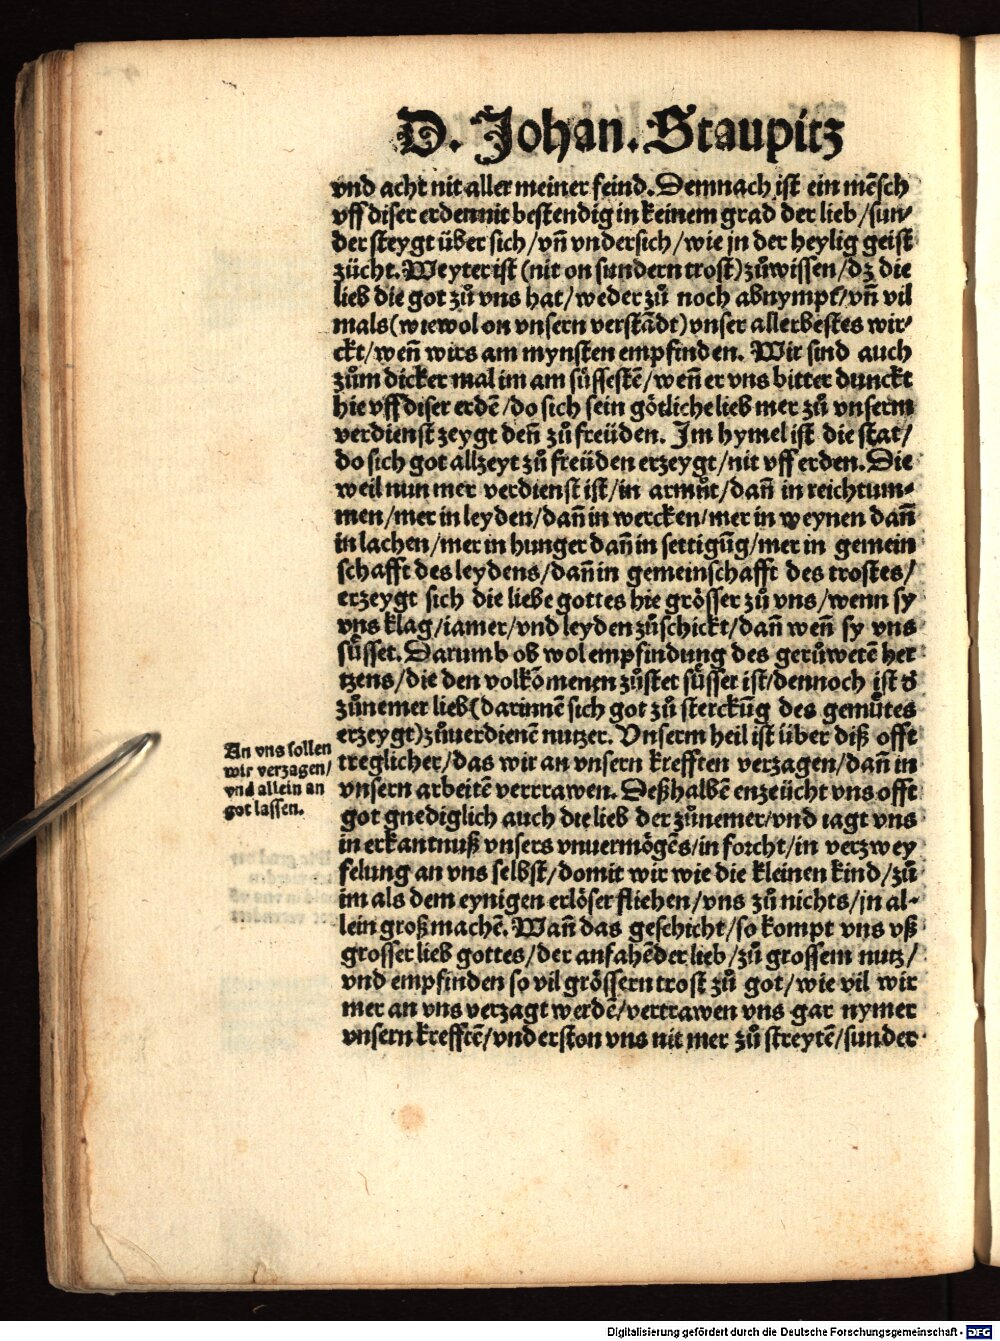 D. Johan. Staupitz
vnd acht nit aller meiner feind. Demnach ist ein mẽsch
vff diser erden nit bestendig in keinem grad der lieb/sun⸗
der steygt über sich/vñ vndersich/wie jn der heylig geist
zücht. Weyter ist (nit on sundern trost) zůwissen/dz die
lieb die got zů vns hat/weder zů noch abnympt/vñ vil
mals (wiewol on vnsern verstãdt) vnser allerbestes wir⸗
ckt/weñ wirs am mynsten empfinden. Wir sind auch
zům dicker mal im am süssestẽ/weñ er vns bitter dunckt
hie vff diser erdẽ/do sich sein götliche lieb mer zů vnserm
verdienst zeygt deñ zů freüden. Im hymel ist die stat/
do sich got allzeyt zů freüden erzeygt/nit vff erden. Die
weil nun mer verdienst ist/in armůt/dañ in reichtum⸗
men/mer in leyden/dañ in wercken/mer in weynen dañ
in lachen/mer in hunger dañ in settigũg/mer in gemein
schafft des leydens/dañ in gemeinschafft des trostes/
erzeygt sich die liebe gottes hie grösser zů vns/wenn sy
vns klag/iamer/vnd leyden zůschickt/dañ weñ sy vns
süsset. Darumb ob wol empfindung des gerůwetẽ her
tzens/die den volkõmenen zůstet süsser ist/dennoch ist d̕
zůnemer lieb (darinnẽ sich got zů sterckũg des gemůtes
erzeygt) zůuerdienẽ nutzer. Vnserm heil ist über diß offt
treglicher/das wir an vnsern krefften verzagen/dañ in
vnsern arbeitẽ vertrawen. Deßhalbẽ enzeücht vns offt
got gnediglich auch die lieb der zůnemer/vnd iagt vns
in erkantnuß vnsers vnuermögẽs/in forcht/in verzwey
felung an vns selbst/domit wir wie die kleinen kind/zů
im als dem eynigen erlöser fliehen/vns zů nichts/jn al⸗
lein groß machẽ. Wañ das geschicht/so kompt vns vß
grosser lieb gottes/der anfahẽder lieb/zů grossem nutz/
vnd empfinden so vil grössern trost zů got/wie vil wir
mer an vns verzagt werdẽ/vertrawen vns gar nymer
vnsern krefftẽ/vnderston vns nit mer zů streytẽ/sunder
An vns sollen
wir verzagen/
vnd allein an
got lassen.
Digitalisierung gefördert durch die Deutsche Forschungsgemeinschaft - DFG